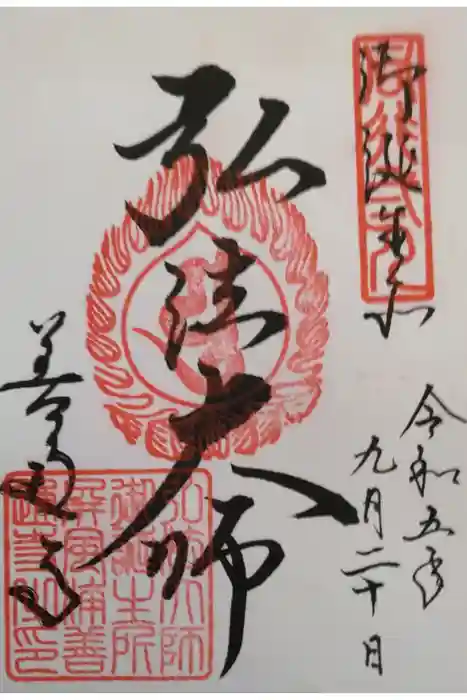 御誕生所
令和五年
九月二十日
弘法大師
善通寺
弘法大師
御誕生所
屏風浦善
通寺之印